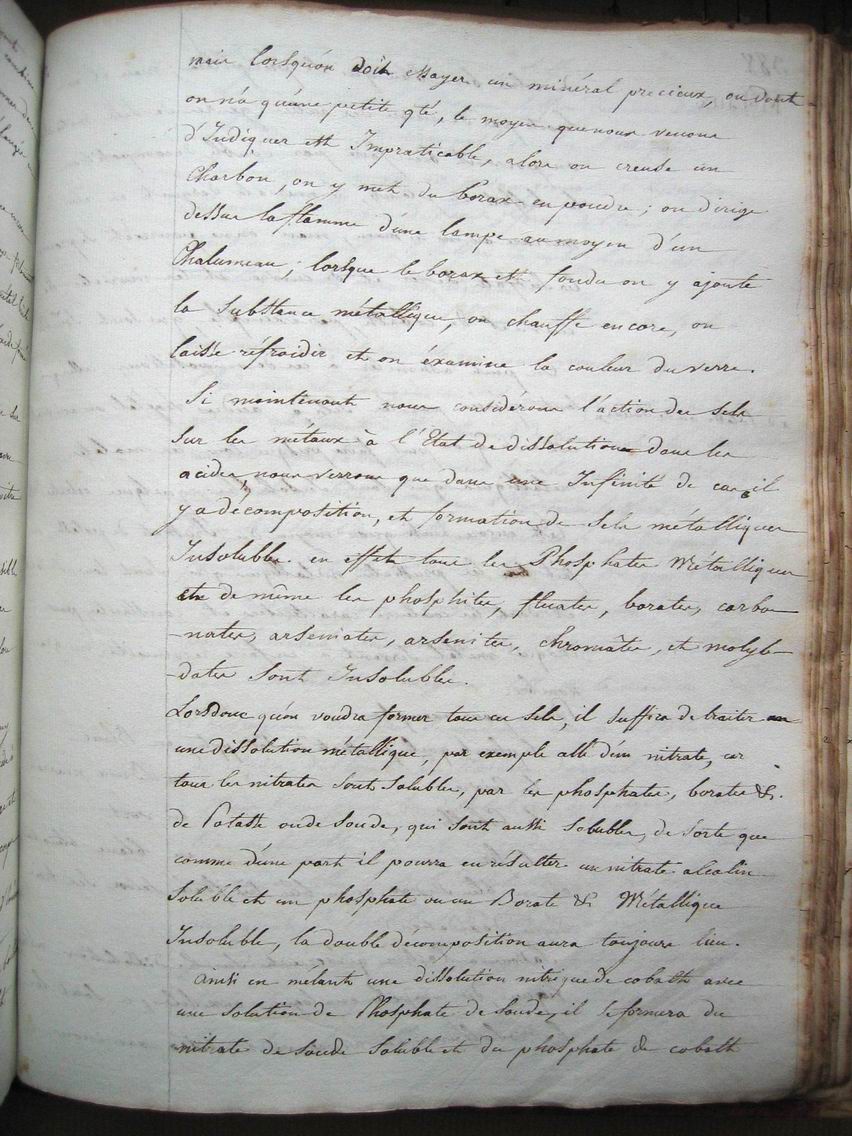 mais lorsqu'on doit essayer un minéral precieux, ou dont
on n'a qu'une petite qté, le moyen que nous venons
d'Indiquer est Impraticable, alors on creuse un
Charbon, on y met du borax en poudre; on dirige
dessus la flamme d'une lampe au moyen d'un
Chalumeau; lorsque le borax est fondu on y ajoute
la substance métallique, on chauffe encore, on
laisse réfroidir et on éxamine la couleur du verre.
Si maintenant nous considérons l'action des sels
sur les métaux à l'Etat de dissolution dans les
acides, nous verrons que dans une Infinité de cas il
y a décomposition, et formation de sels métalliques
Insolubles. en effet tous les Phosphates Métalliques
de même les phosphites, fluates, borates, carbo-
-nates, arseniates, arsenites, chromates, et molyb-
-dates sont Insolubles.
Lors donc qu'on voudra former tous ces sels, il suffira de traiter
une dissolution métallique, par exemple celle d'un nitrate, car
tous les nitrates sont solubles, par les phosphates, borates &c.
de Potasse ou de soude, qui sont aussi solubles, de sorte que
comme d'une part il pourra en résulter un nitrate alcalin
soluble et un phosphate ou un Borate &c Métallique
Insoluble, la double décomposition aura toujours lieu.
ainsi en mélant une dissolution nitrique de cobalt avec
une solution de Phosphate de soude, il se formera du
nitrate de soude soluble et du phosphate de cobalt